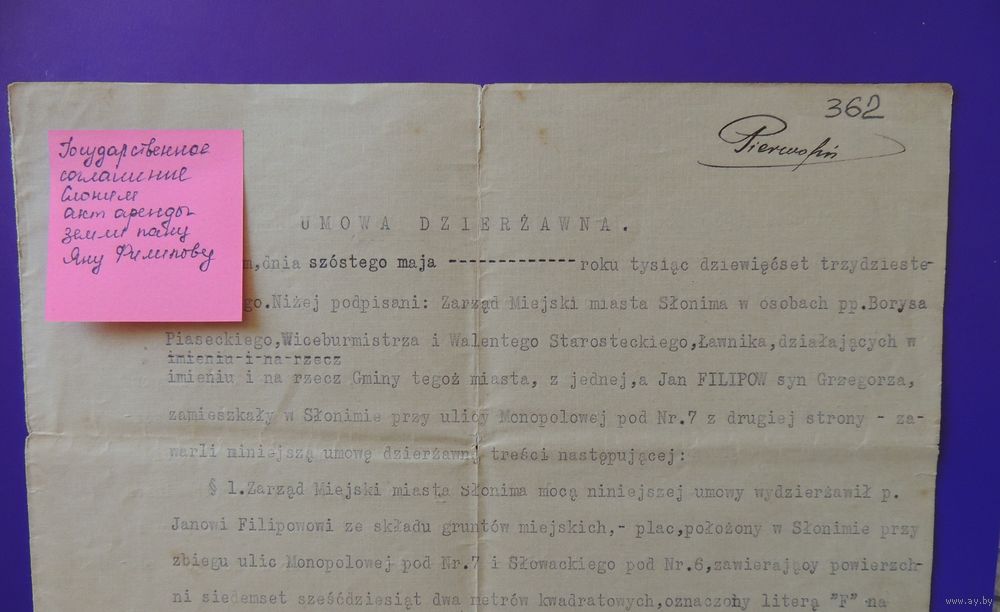 362
Pierwopis
Государственное
соглашение
Слоним
акт аренды
земли пану
Яну Филипову
UMOWA DZIERŻAWNA.
m,dnia szóstego maja -------------- roku tysiąc dziewięćset trzydzieste-
go.Niżej podpisani: Zarząd Miejski miasta Słonima w osobach pp.Borysa
Piaseckiego,Wiceburmistrza i Walentego Starosteckiego,Ławnika,działających w
imieniu-i-na-rzecz
imieniu i na rzecz Gminy tegoż miasta, z jednej,a Jan FILIPOW syn Grzegorza,
zamieszkały w Słonimie przy ulicy Monopolowej pod Nr.7 z drugiej strony - za-
warli niniejszą umowę dzierżawną treści następującej:
§ 1.Zarząd Miejski miasta Słonima mocą niniejszej umowy wydzierżawił p.
Janowi Filipowowi ze składu gruntów miejskich,- plac,położony w Słonimie przy
zbiegu ulic Monopolowej pod Nr.7 i Słowackiego pod Nr.6,zawierający powierzch-
ni siedemset sześćdziesiąt dwa metrów kwadratowych,oznaczony literą "F" na
www.ay.by